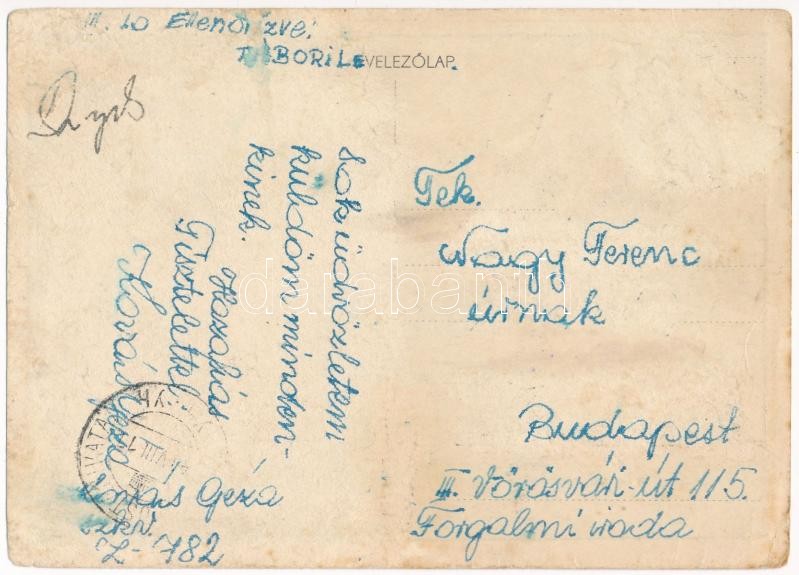 TÁBORI LEVELEZŐLAP.
Sok üdvözletem
küldöm minden-
kinek.
Hazafias
Tisztelettel
Kovács Géza
Géza
szkv.
L-782
Tek.
Nagy Ferenc
úrnak
Budapest
III. Vörösvári-út 115.
Forgalmi iroda
darabanth